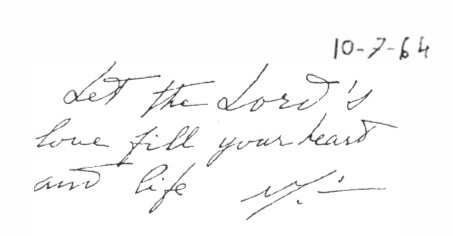 10-7-64
Let the Lord's
love fill your heart
and life